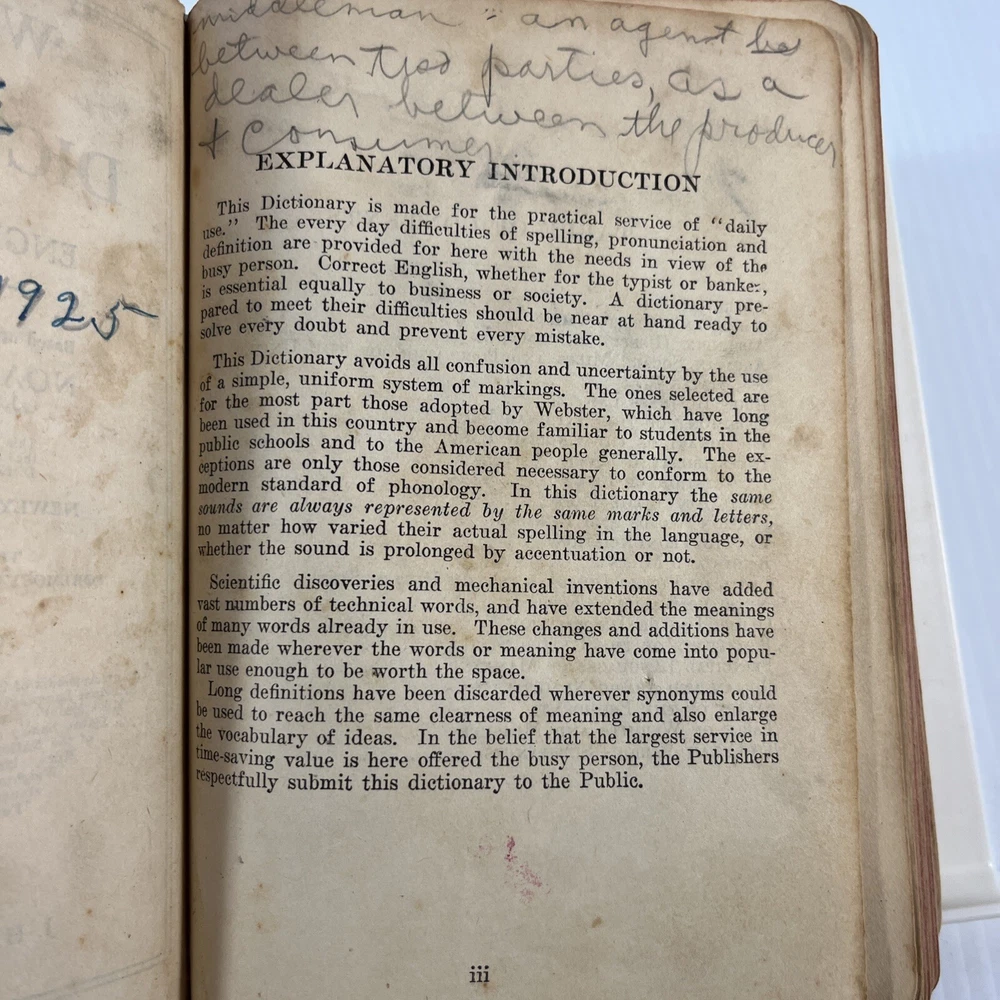 1925
middleman = an agent be
between two parties, as a
dealer between the producer
& Consumer
EXPLANATORY INTRODUCTION
This Dictionary is made for the practical service of "daily
use." The every day difficulties of spelling, pronunciation and
definition are provided for here with the needs in view of the
busy person. Correct English, whether for the typist or banker,
is essential equally to business or society. A dictionary pre-
pared to meet their difficulties should be near at hand ready to
solve every doubt and prevent every mistake.
This Dictionary avoids all confusion and uncertainty by the use
of a simple, uniform system of markings. The ones selected are
for the most part those adopted by Webster, which have long
been used in this country and become familiar to students in the
public schools and to the American people generally. The ex-
ceptions are only those considered necessary to conform to the
modern standard of phonology. In this dictionary the same
sounds are always represented by the same marks and letters,
no matter how varied their actual spelling in the language, or
whether the sound is prolonged by accentuation or not.
Scientific discoveries and mechanical inventions have added
vast numbers of technical words, and have extended the meanings
of many words already in use. These changes and additions have
been made wherever the words or meaning have come into popu-
lar use enough to be worth the space.
Long definitions have been discarded wherever synonyms could
be used to reach the same clearness of meaning and also enlarge
the vocabulary of ideas. In the belief that the largest service in
time-saving value is here offered the busy person, the Publishers
respectfully submit this dictionary to the Public.
iii